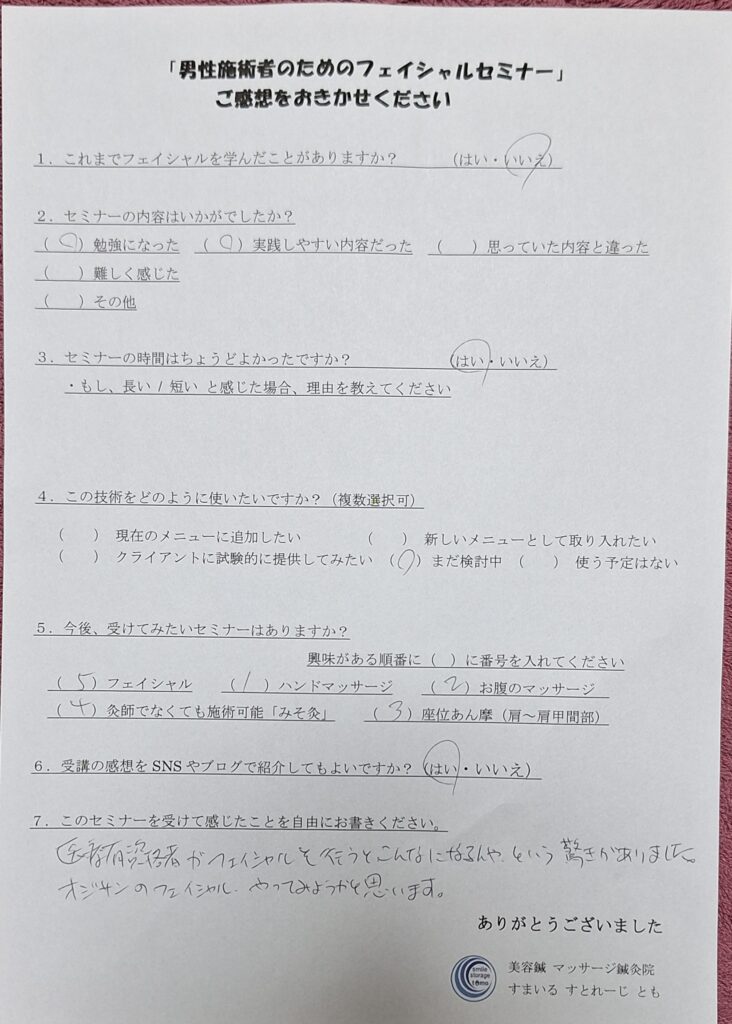 「男性施術者のためのフェイシャルセミナー」
ご感想をおきかせください
1．これまでフェイシャルを学んだことがありますか？　（はい・いいえ）
2．セミナーの内容はいかがでしたか？
（○）勉強になった　（○）実践しやすい内容だった　（　）思っていた内容と違った
（　）難しく感じた
（　）その他
3．セミナーの時間はちょうどよかったですか？　（はい・いいえ）
・もし、長い / 短い と感じた場合、理由を教えてください
4．この技術をどのように使いたいですか？（複数選択可）
（　）現在のメニューに追加したい　（　）新しいメニューとして取り入れたい
（　）クライアントに試験的に提供してみたい　（○）まだ検討中　（　）使う予定はない
5．今後、受けてみたいセミナーはありますか？
興味がある順番に（　）に番号を入れてください
（5）フェイシャル　（1）ハンドマッサージ　（2）お腹のマッサージ
（4）灸師でなくても施術可能「みそ灸」　（3）座位あん摩（肩～肩甲間部）
6．受講の感想をSNSやブログで紹介してもよいですか？（はい・いいえ）
7．このセミナーを受けて感じたことを自由にお書きください。
医療有資格者がフェイシャルを行うとこんなになるんや、という驚きがありました。
オジサンのフェイシャル、やってみようかと思います。
ありがとうございました
smile
storage
tomo
美容鍼 マッサージ鍼灸院
すまいる すとれーじ とも